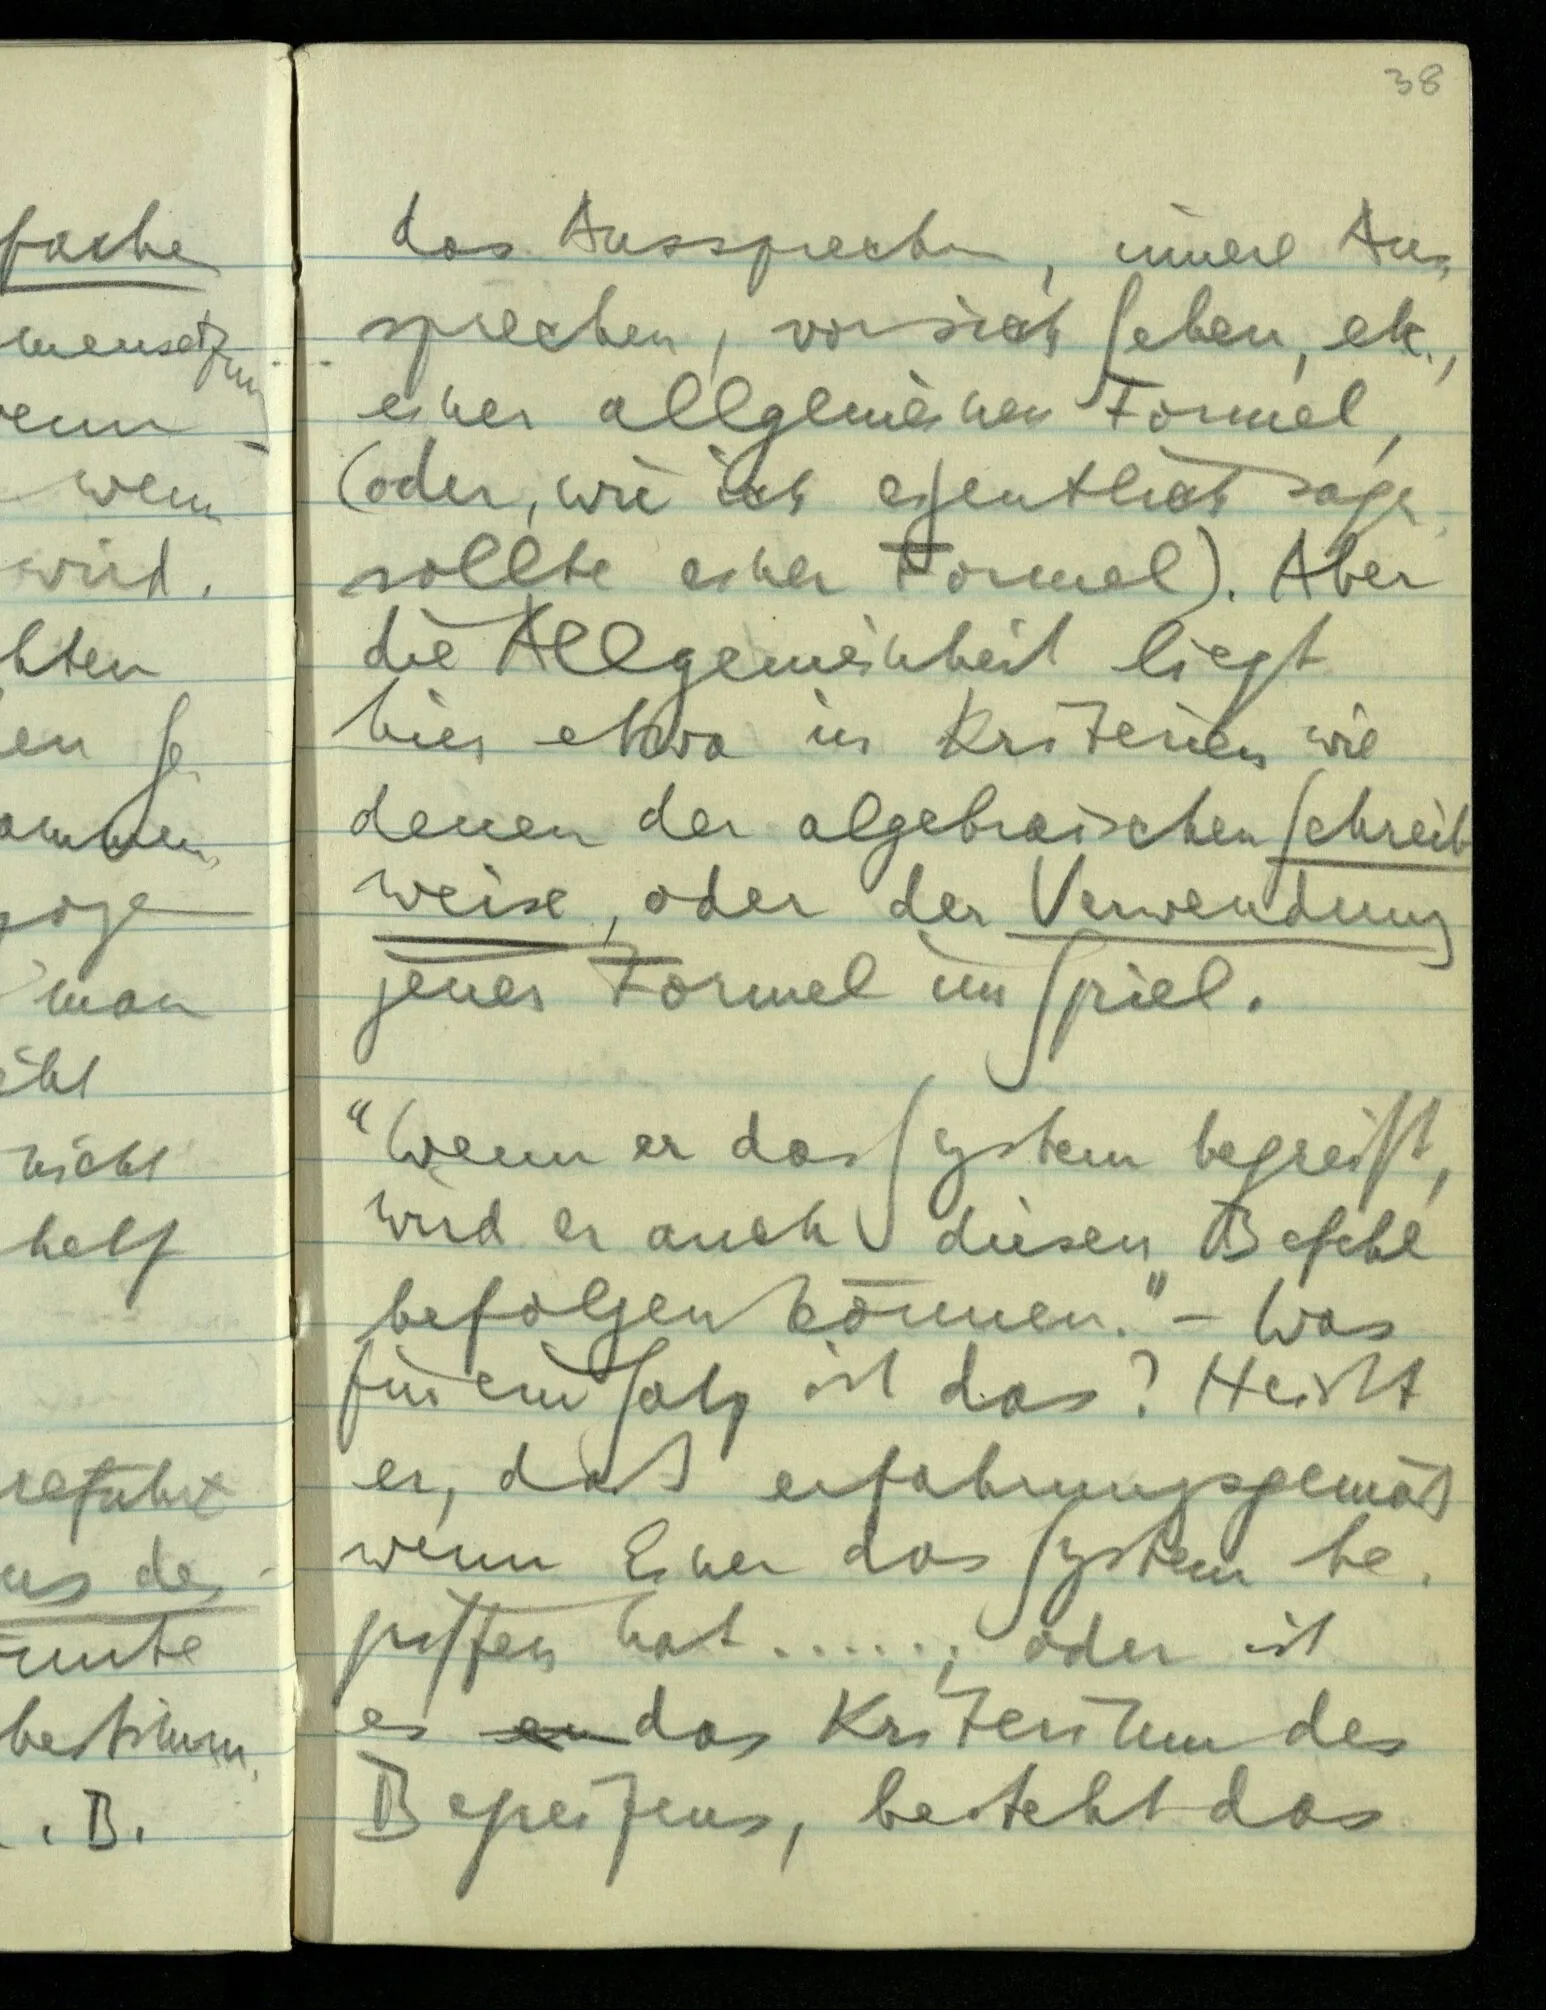 38
fache
mensetzung
wenn
wenn
wird.
hten
en Ge
ammen
man
nicht
helf
geführt
aus der
bestimm
. B.
das Aussprechen, innere Aus-
sprechen, vor sich Sehen, etc.,
einer allgemeinen Formel,
(oder, wie ich eigentlich sagen
sollte einer Formel). Aber
die Allgemeinheit liegt
hier etwa in Kriterien wie
denen der algebraischen Schreib
weise, oder der Verwendung
jener Formel im Spiel.
"Wenn er das System begreift,
wird er auch diesen Befehl
befolgen können." – Was
für ein Satz ist das? Heißt
er, daß erfahrungsgemäß
wenn Einer das System be-
griffen hat ......, oder ist
es das Kriterium des
Begreifens, besteht das